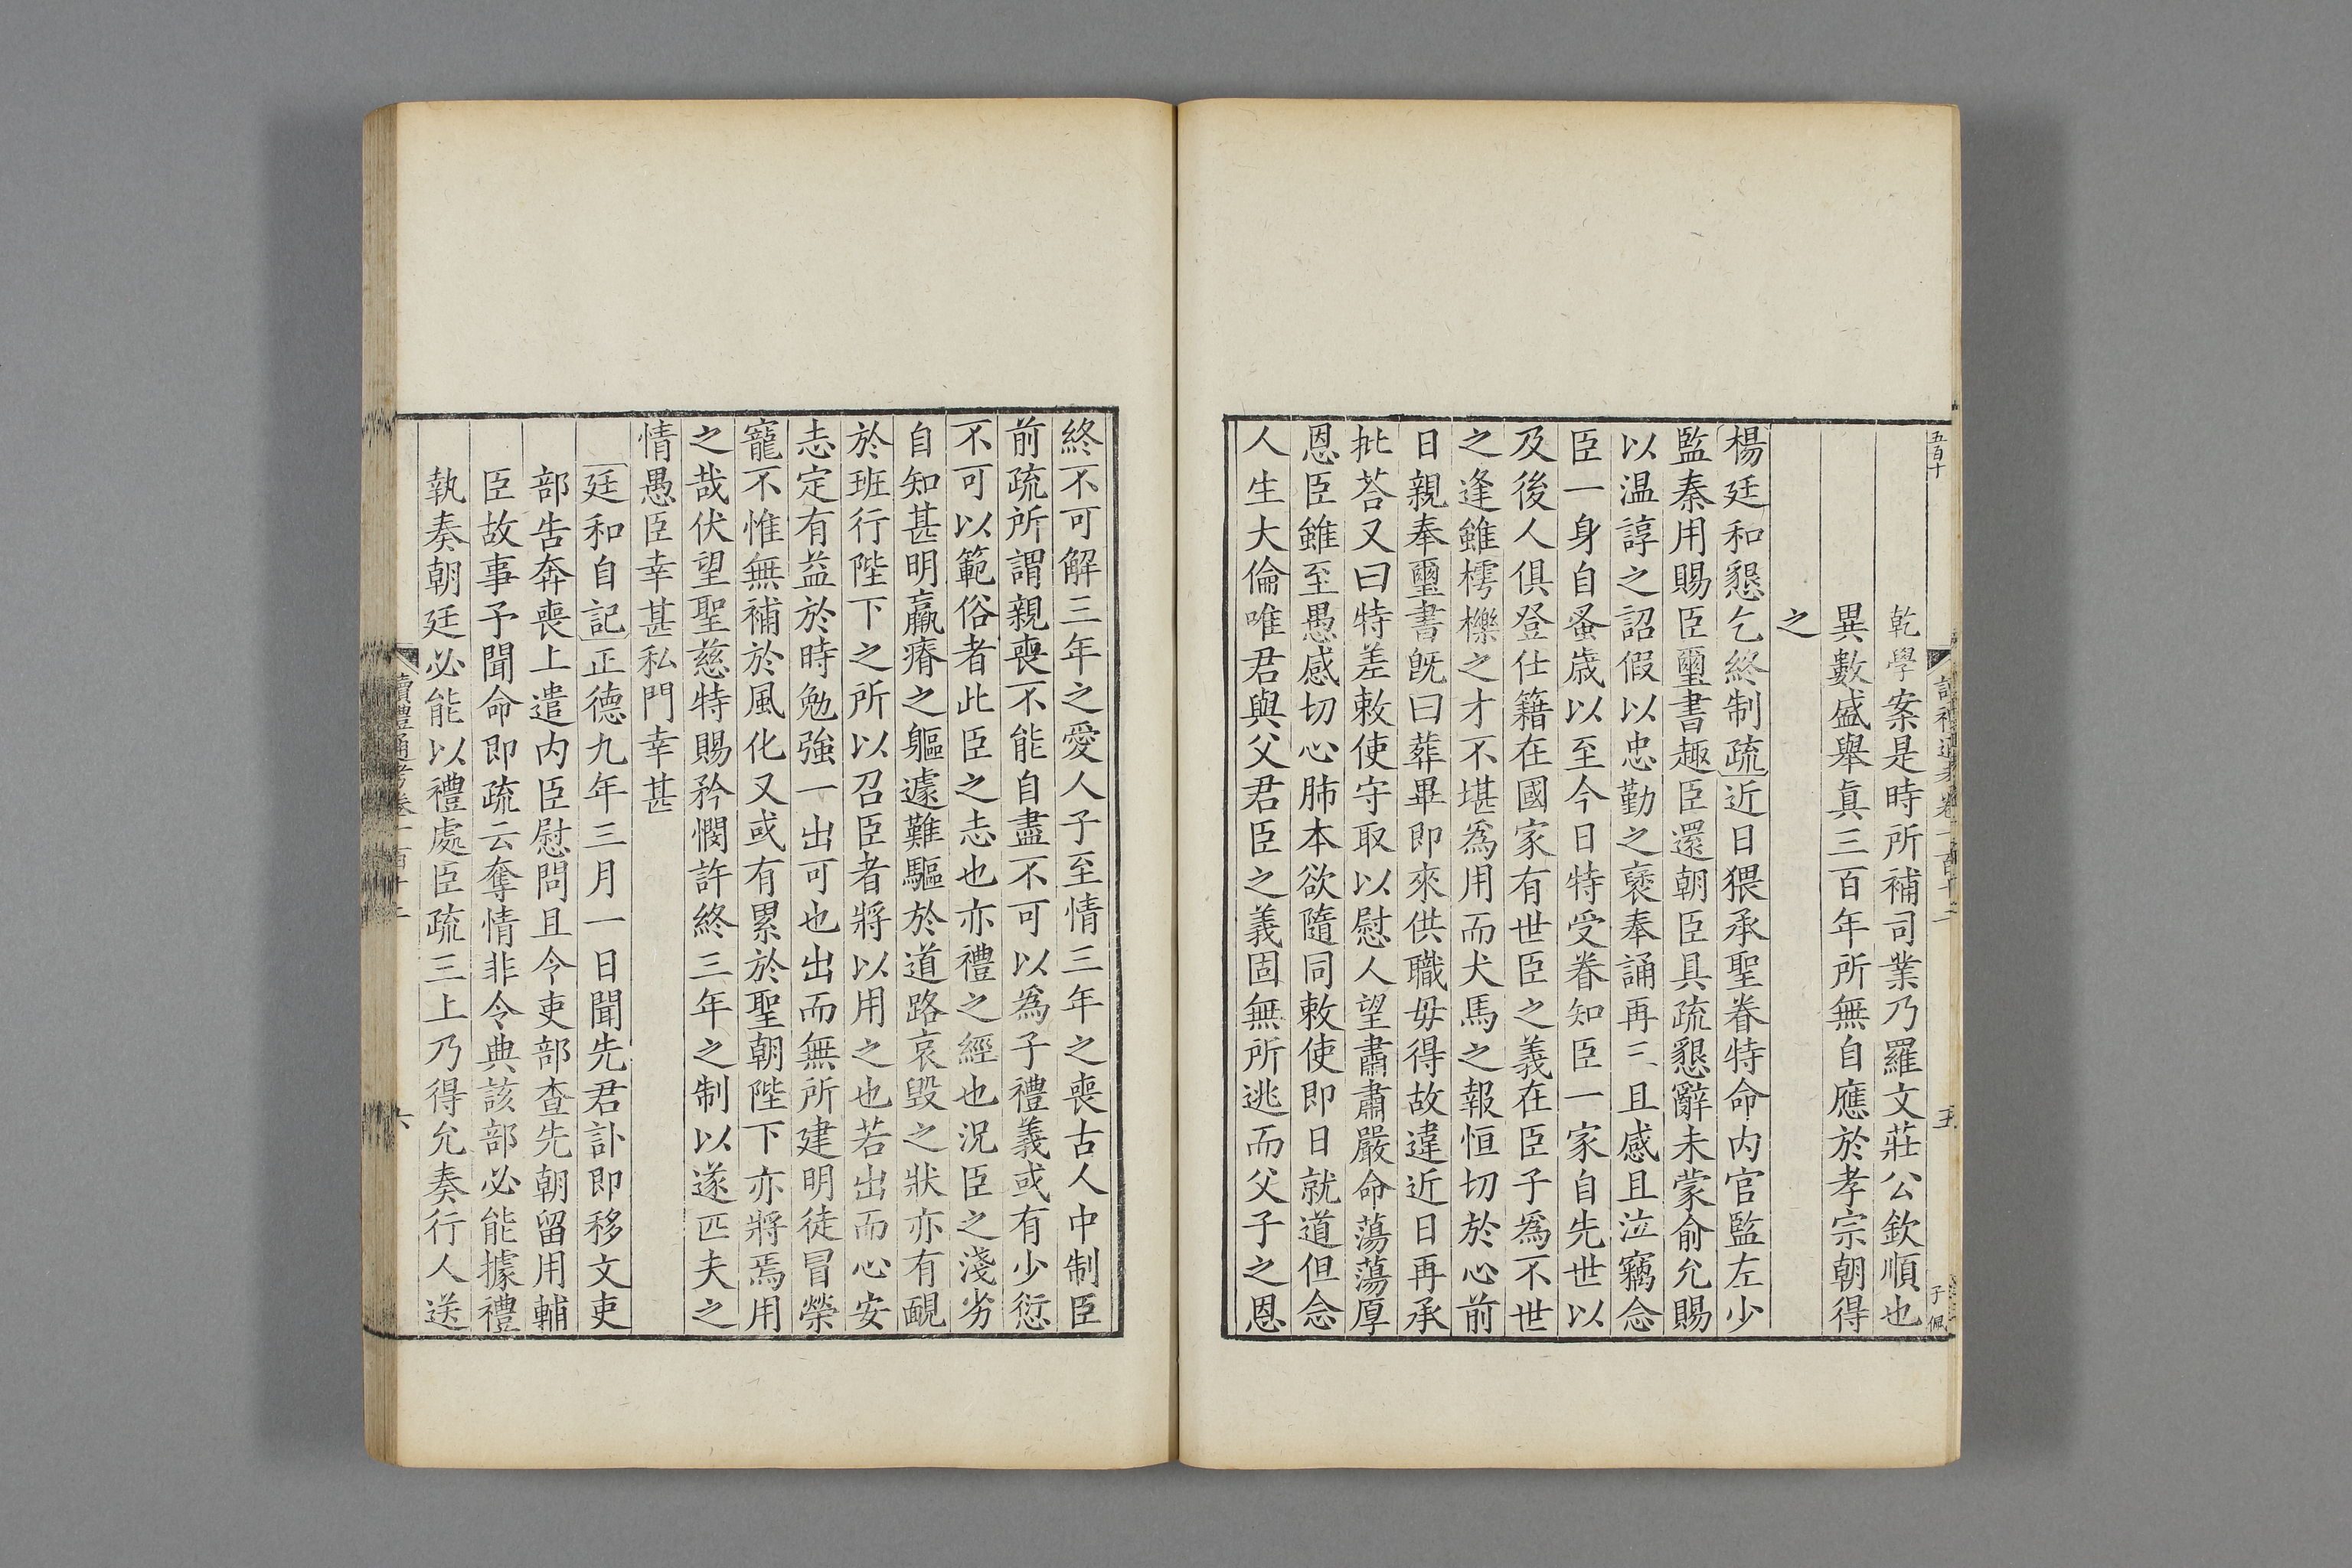 五百十
乾學案是時所補司業乃羅文莊公欽順也
異數盛舉眞三百年所無自應於孝宗朝得
之
楊廷和懇乞終制疏近日猥承聖眷特命內官監左少
監秦用賜臣璽書趣臣還朝臣具疏懇辭未蒙俞允賜
以温諄之詔假以忠勤之襃奉誦再三且感且泣竊念
臣一身自蚤歲以至今日特受眷知臣一家自先世以
及後人俱登仕籍在國家有世臣之義在臣子爲不世
之逢雖樗櫟之才不堪爲用而犬馬之報恒切於心前
日親奉璽書旣曰葬畢即來供職毋得故違近日再承
批荅又曰特差敕使守取以慰人望肅肅嚴命蕩蕩厚
恩臣雖至愚感切心肺本欲隨同敕使即日就道但念
人生大倫唯君與父君臣之義固無所逃而父子之恩
終不可解三年之愛人子至情三年之喪古人中制臣
前疏所謂親喪不能自盡不可以爲子禮義或有少愆
不可以範俗者此臣之志也亦禮之經也況臣之淺劣
自知甚明羸瘠之軀遽難驅於道路哀毀之狀亦有靦
於班行陛下之所以召臣者將以用之也若出而心安
志定有益於時勉強一出可也出而無所建明徒冒榮
寵不惟無補於風化又或有累於聖朝陛下亦將焉用
之哉伏望聖慈特賜矜憫許終三年之制以遂匹夫之
情愚臣幸甚私門幸甚
廷和自記正德九年三月一日聞先君訃即移文吏
部告奔喪上遣內臣慰問且令吏部查先朝留用輔
臣故事予聞命即疏云奪情非令典該部必能據禮
執奏朝廷必能以禮處臣疏三上乃得允奏行人送
讀禮通考卷一百十二
六